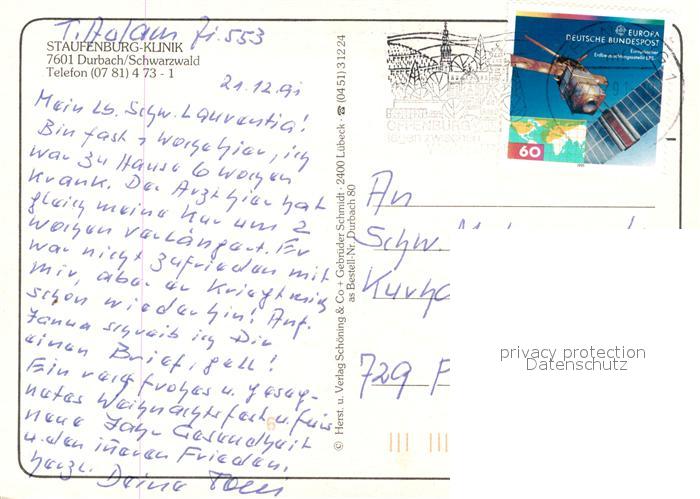 T. Adam Zi. 553
STAUFENBURG-KLINIK
7601 Durbach/Schwarzwald
Telefon (07 81) 4 73 - 1
21.12.91
Mein lb. Schw. Laurentia!
Bin fast 1 Woche hier, ich
war zu Hause 6 Wochen
krank. Der Arzt hier hat
gleich meine Kur um 2
Wochen verlängert. Er
war nicht zufrieden mit
mir, aber er kriegt mich
schon wieder hin! Anf.
Januar schreib ich Dir
einen Brief, gell!
Ein recht frohes u. geseg-
netes Weihnachtsfest u. fürs
neue Jahr Gesundheit
u. den inneren Frieden.
herzl. Deine
© Herst. u. Verlag Schöning & Co + Gebrüder Schmidt · 2400 Lübeck · ☎ (04 51) 3 12 24
as Bestell-Nr. Durbach 80
OFFENBURG
EUROPA
DEUTSCHE BUNDESPOST
Europäischer
Erdbeobachtungssatellit ERS-1
60
1991
An
Schw.
Kurha
729 F
privacy protection
Datenschutz